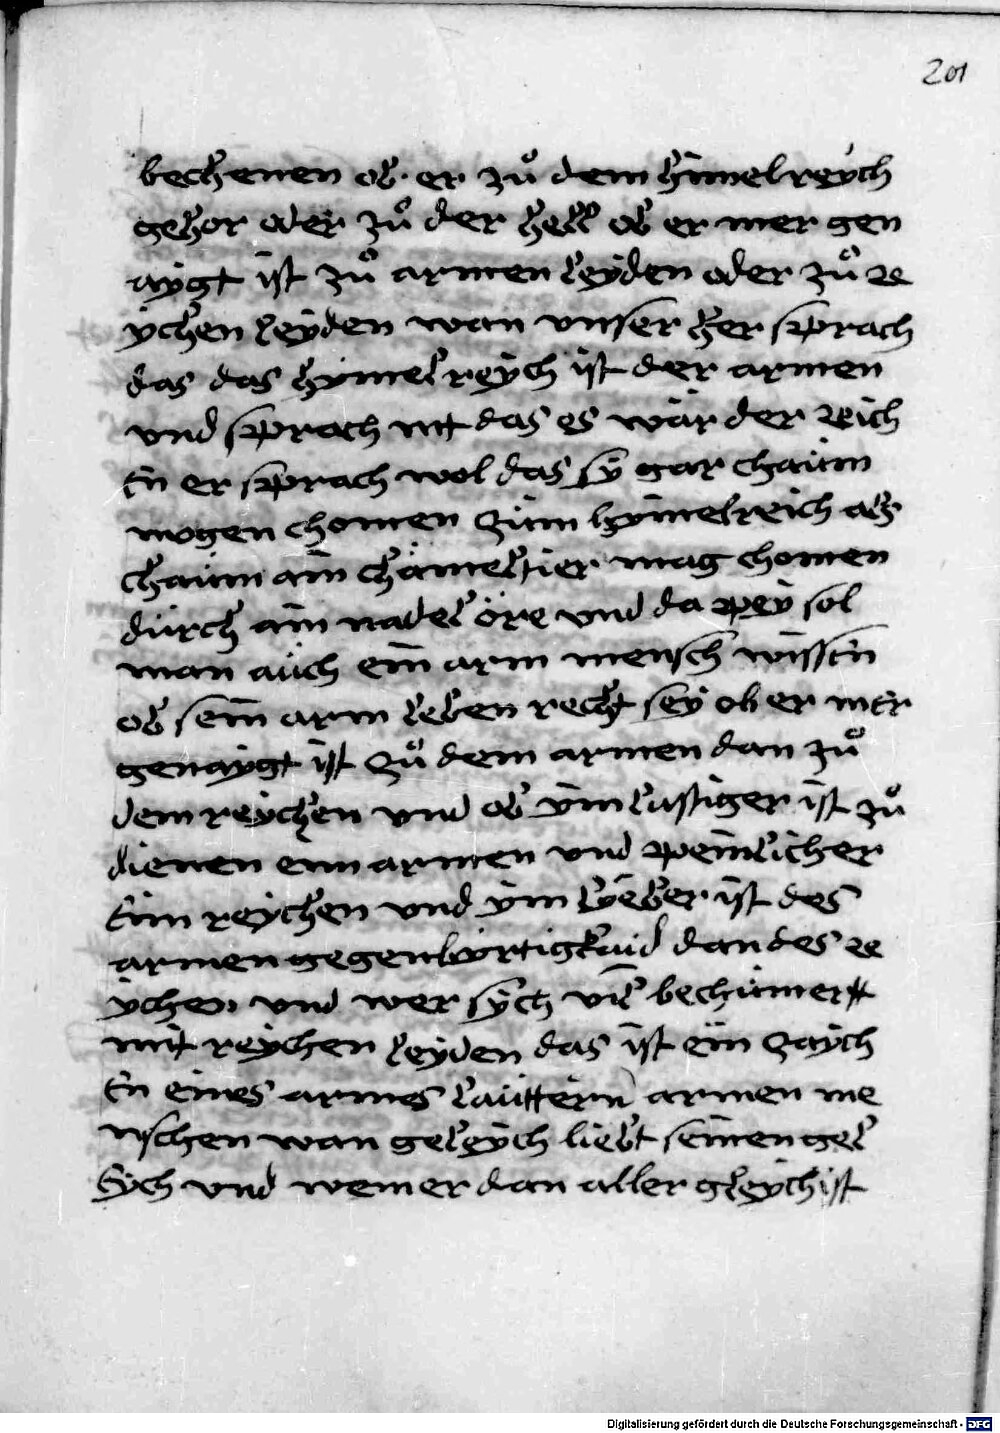 201
bechenen ob er zů dem himelreych
gehor oder zů der hell ob er mer gen
aygt ist zů armen leyden oder zů re
ychen leyden wan vnser her sprach
das das hymelreych ist der armen
vnd sprach nit das es wär der reich
en er sprach wol das sy gar chaum
mogen chomen zum hymelreich als
chaum ain chämeltier mag chomen
durch ain nadel öre vnd da pey sol
man auch ein arm mensch wissen
ob sein arm leben recht sey ob er mer
genaygt ist zů dem armen dan zů
dem reychen vnd ob ym lustiger ist zů
dienen enn armen vnd peinlicher
eim reychen vnd ym lieber ist des
armen gegenbortigkaid dan des re
ychen vnd wer sych vil bechumert
mit reychen leyden das ist ein zaych
en eines armes lauttern armen me
nschen wan geleych liebt seinen gel
eych vnd wem er dan aller gleych ist
Digitalisierung gefördert durch die Deutsche Forschungsgemeinschaft - DFG